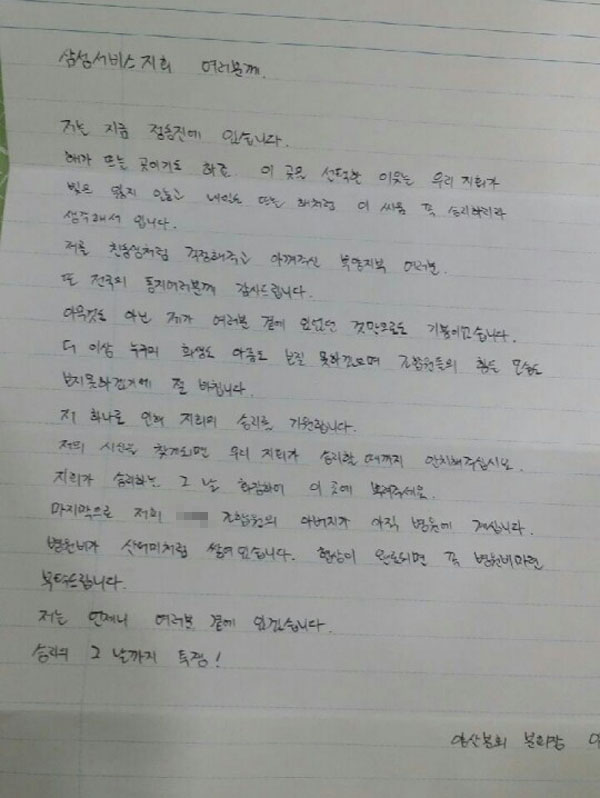 삼성서비스지회 여러분께.
저는 지금 정동진에 있습니다.
해가 뜨는 곳이기도 하죠. 이 곳을 선택한 이유는 우리 지회가
빛을 잃지 않고 내일도 뜨는 해처럼 이 싸움 꼭 승리하리라
생각해서 입니다.
저를 친동생처럼 걱정해주고 아껴주신 부양지부 여러분.
또 전국의 동지여러분께 감사드립니다.
아무것도 아닌 제가 여러분 곁에 있었던 것만으로도 기쁨이었습니다.
더 이상 누구의 희생도 아픔도 보질 못하겠으며 조합원들의 힘든 모습도
보지못하겠기에 절 바칩니다.
저 하나로 인해 지회의 승리를 기원합니다.
저의 시신을 찾게되면 우리 지회가 승리할 때까지 안치해주십시오.
지회가 승리하는 그 날 화장하여 이 곳에 뿌려주세요.
마지막으로 저희 조합원의 아버지가 아직 병원에 계십니다.
병원비가 산더미처럼 쌓여있습니다. 협상이 완료되면 꼭 병원비마련
부탁드립니다.
저는 언제나 여러분 곁에 있겠습니다.
승리의 그 날까지 투쟁!
양산분회 분회장